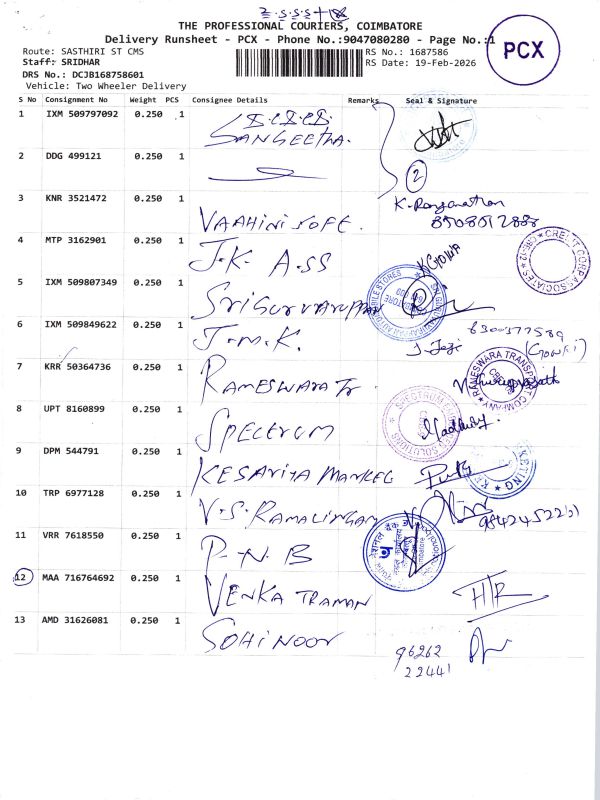 THE PROFESSIONAL COURIERS, COIMBATORE
Delivery Runsheet - PCX - Phone No.:9047080280 - Page No.:1
PCX
Route: SASTHIRI ST CMS
RS No.: 1687586
Staff: SRIDHAR
RS Date: 19-Feb-2026
DRS No.: DCJB168758601
Vehicle: Two Wheeler Delivery
S No Consignment No Weight PCS Consignee Details Remarks Seal & Signature
1 IXM 509797092 0.250 1
SANGEETHA.
2 DDG 499121 0.250 1
2
3 KNR 3521472 0.250 1 VAAHINI SOFT. K. Ranganathan
8508012888
4 MTP 3162901 0.250 1 J.K. ASS
CREDIT CORP ASSOCIATES * CBE-12 *
5 IXM 509807349 0.250 1
6 IXM 509849622 0.250 1 J.M.K.
6300377589
(Gowri)
7 KRR 50364736 0.250 1 RAMESWARA Tr
RAMESWARA TRANSPORT COMPANY
8 UPT 8160899 0.250 1 SPECTRUM
9 DPM 544791 0.250 1
10 TRP 6977128 0.250 1 V.S. RAMALINGAM
11 VRR 7618550 0.250 1 P-N B
12 MAA 716764692 0.250 1 VENKATRAMAN
13 AMD 31626081 0.250 1 SOHINOOR
96262
22441